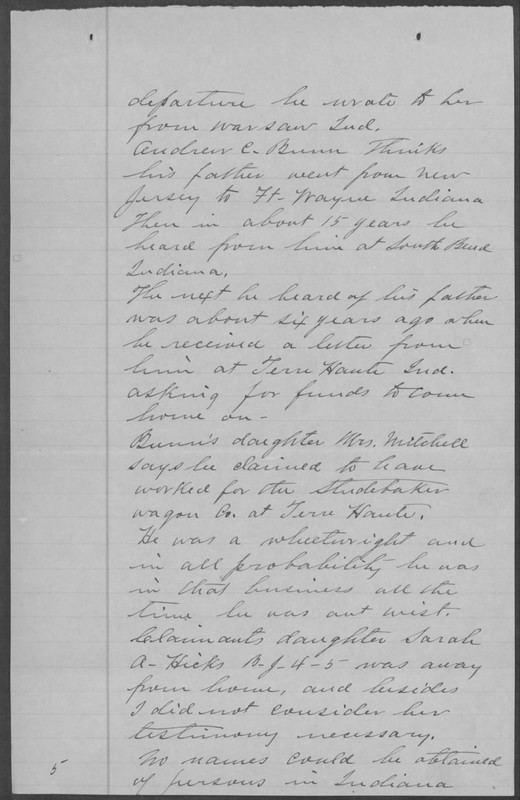 departure he wrote to her
from Warsaw Ind.
Andrew C. Bunn Thinks
his father went from new
Jersey to Ft. Wayne Indiana
Then in about 15 years he
heard from him at South Bend
Indiana.
The next he heard of his father
was about six years ago when
he received a letter from
him at Terre Haute Ind.
asking for funds to come
home on -
Bunn's daughter Mrs. Mitchell
says he claimed to have
worked for the Studebaker
wagon Co. at Terre Haute.
He was a wheelwright and
in all probability he was
in that business all the
time he was out west.
Claimants daughter Sarah
A- Hicks B-J-4-5 was away
from home, and besides
I did not consider her
testimony necessary.
No names could be obtained
5 of persons in Indiana